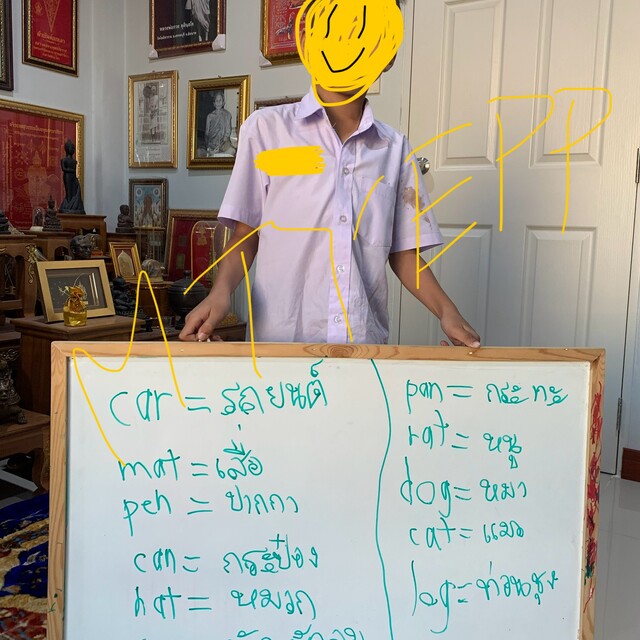 MTEPP
car = รถยนต์
mat = เสื่อ
pen = ปากกา
can = กระป๋อง
hat = หมวก
pan = กระทะ
rat = หนู
dog = หมา
cat = แมว
log = ท่อนซุง